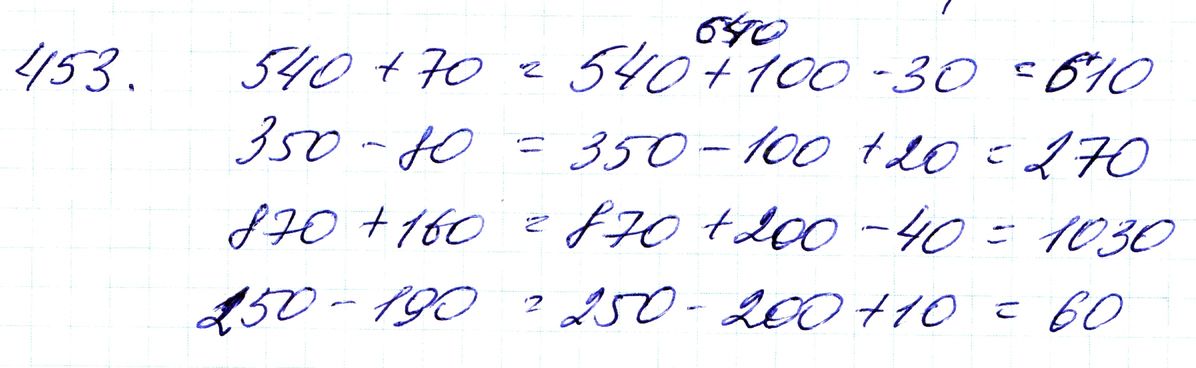 640
453. 540 + 70 = 540 + 100 - 30 = 610
350 - 80 = 350 - 100 + 20 = 270
870 + 160 = 870 + 200 - 40 = 1030
250 - 190 = 250 - 200 + 10 = 60